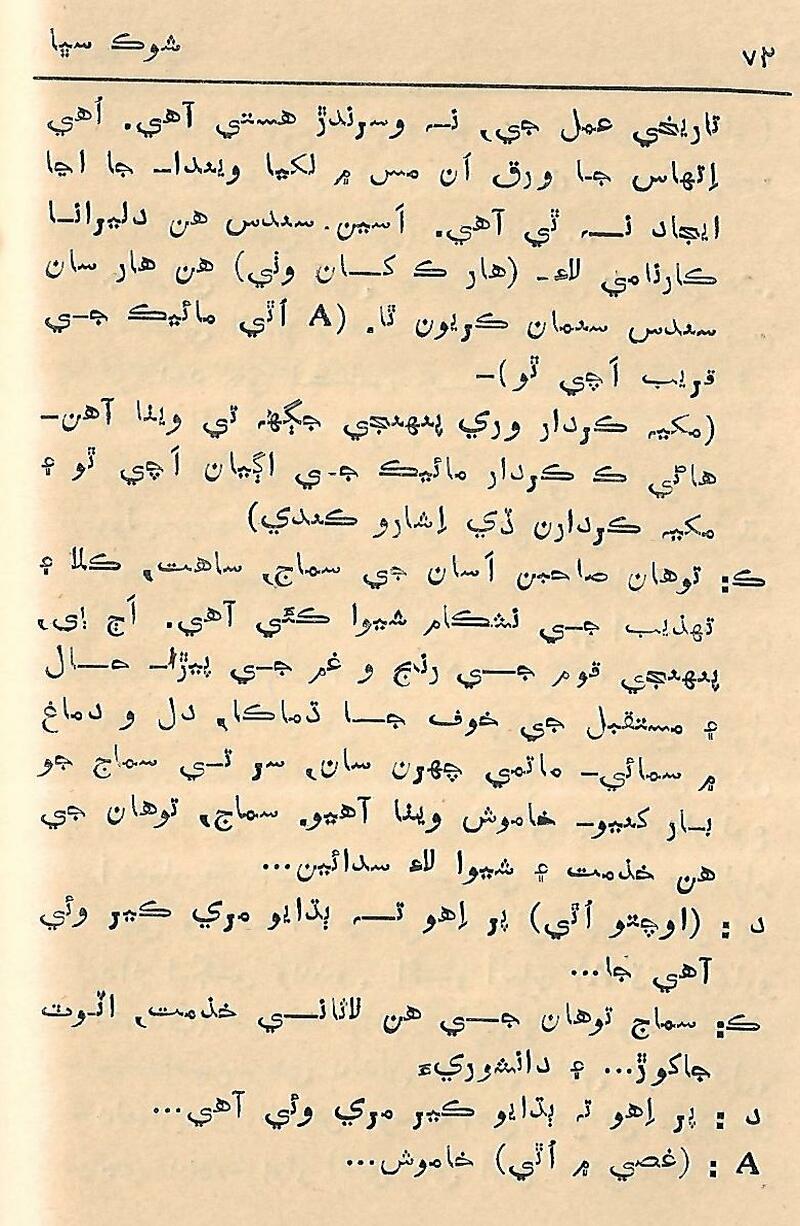 ۷۳ شوڪ سڀا
تاريخي عمل جي، نہ وسرندڙ هستي آهي. اُهي
اِتهاس جا ورق اُن مس ۾ لکيا ويندا۔ جا اڃا
ايجاد نہ ٿي آهي. اَسين. سندس هن دليرانا
ڪارنامي لاءِ۔ (هار ڪ کان وٺي) هن هار سان
سندس سنمان ڪريون ٿا. (A اُٿي مائيڪ جي
قريب اَچي ٿو)۔
(مکيہ ڪردار وري پنهنجي جڳهہ تي ويٺا آهن۔
هاڻي ڪ ڪردار مائيڪ جي اڳيان اَچي ٿو ۽
مکيہ ڪردارن ڏي اِشارو ڪندي)
ڪ: توهان صاحبن اَسان جي سماج, ساهت, ڪلا ۽
تهذيب جي نشڪام شيوا ڪئي آهي. اَڄ اِي,
پنهنجي قوم جي رنج و غم جي پيڙا۔ حال
۽ مستقبل جي خوف جا ڌماڪا, دل و دماغ
۾ سمائي۔ ماتمي چهرن سان, سر تي سماج جو
بار کنيو۔ خاموش ويٺا آهيو. سماج, توهان جي
هن خذمت ۽ شيوا لاءِ سدائين...
د : (اوچتو اُٿي) پر اِهو تہ ٻڌايو مري ڪير وئي
آهي جا...
ڪ: سماج توهان جي هن لاثاني خذمت, اڻوت
جاکوڙ... ۽ دانشوريءَ
د : پر اِهو تہ ٻڌايو ڪير مري وئي آهي...
A : (غصي ۾ اُٿي) خاموش...